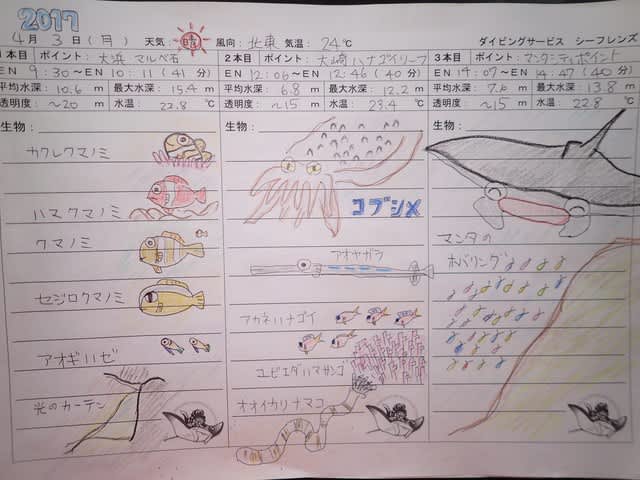 2017
4月 3日(月) 天気: 晴 風向: 北東 気温: 24℃ ダイビングサービス シーフレンズ
1本目 ポイント: 大浜 マルベ石
EN 9:30〜EN 10:11(41分)
平均水深: 10.6 m 最大水深: 15.4 m
透明度: 〜20 m 水温 22.8 ℃
生物:
カクレクマノミ
ハマクマノミ
クマノミ
セジロクマノミ
アオギハゼ
光のカーテン
2本目 ポイント: 大崎ハナゴイリーフ
EN 12:06〜EN 12:46(40分)
平均水深: 6.8 m 最大水深: 12.2 m
透明度: 〜15 m 水温: 23.4 ℃
生物:
コブシメ
アオヤガラ
アカネハナゴイ
ユビエダハマサンゴ
オオイカリナマコ
3本目 ポイント: マンタシティポイント
EN 14:07〜EN 14:47(40分)
平均水深: 7.6 m 最大水深: 13.8 m
透明度: 〜15 m 水温: 22.8 ℃
生物:
マンタの
ホバリング